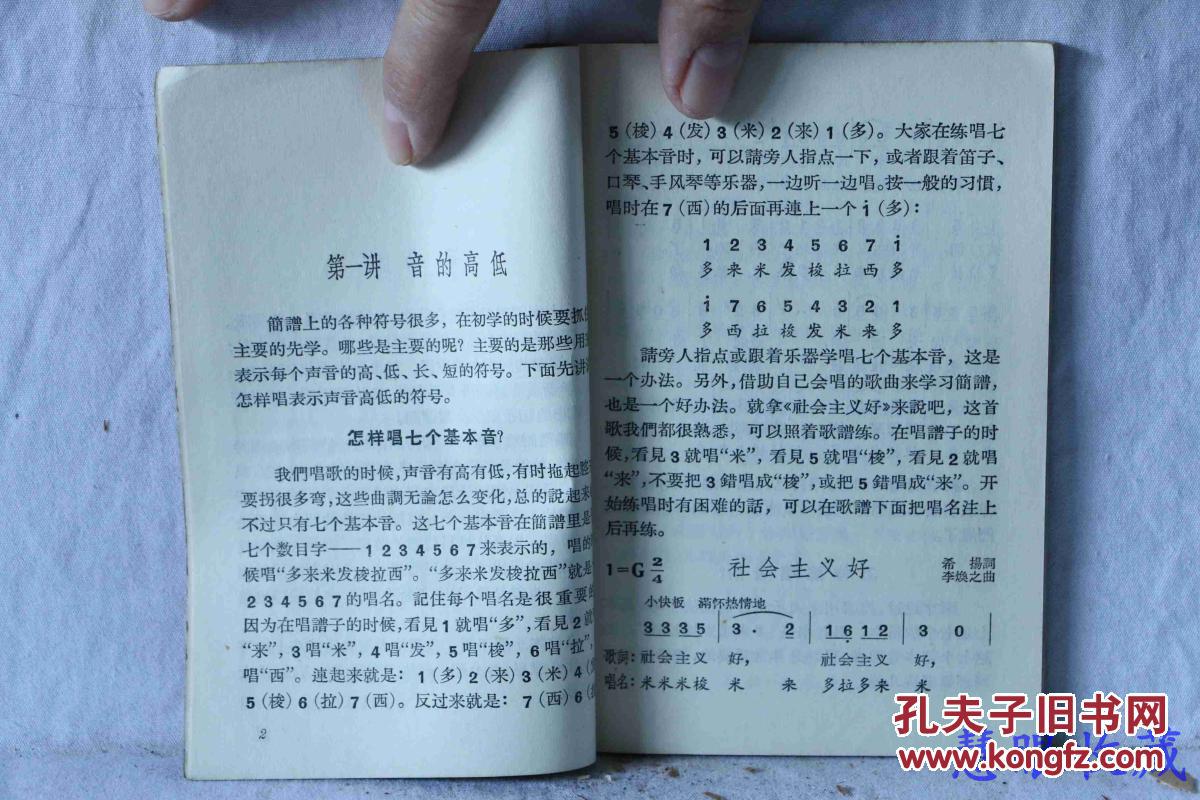 第一讲 音的高低
簡譜上的各种符号很多，在初学的时候要抓
主要的先学。哪些是主要的呢？主要的是那些用
表示每个声音的高、低、长、短的符号。下面先讲
怎样唱表示声音高低的符号。
怎样唱七个基本音？
我們唱歌的时候，声音有高有低，有时拖起
要拐很多弯，这些曲調无論怎么变化，总的說起来
不过只有七个基本音。这七个基本音在簡譜里是
七个数目字——1 2 3 4 5 6 7来表示的，唱的
候唱“多来米发梭拉西”。“多来米发梭拉西”就是
2 3 4 5 6 7的唱名。記住每个唱名是很重要的
因为在唱譜子的时候，看見1就唱“多”，看見2就
“来”，3唱“米”，4唱“发”，5唱“梭”，6唱“拉”，
唱“西”。連起来就是：1（多）2（来）3（米）4（
5（梭）6（拉）7（西）。反过来就是：7（西）6（
2
5（梭）4（发）3（米）2（来）1（多）。大家在练唱七
个基本音时，可以請旁人指点一下，或者跟着笛子、
口琴、手风琴等乐器，一边听一边唱。按一般的习慣，
唱时在7（西）的后面再連上一个i（多）：
1 2 3 4 5 6 7 i
多 来 米 发 梭 拉 西 多
i 7 6 5 4 3 2 1
多 西 拉 梭 发 米 来 多
請旁人指点或跟着乐器学唱七个基本音，这是
一个办法。另外，借助自己会唱的歌曲来学习簡譜，
也是一个好办法。就拿《社会主义好》来說吧，这首
歌我們都很熟悉，可以照着歌譜练。在唱譜子的时
候，看見3就唱“米”，看見5就唱“梭”，看見2就唱
“来”，不要把3錯唱成“梭”，或把5錯唱成“来”。开
始练唱时有困难的話，可以在歌譜下面把唱名注上
后再练。
1=G 2/4 社会主义好 希揚詞
李煥之曲
小快板 满怀热情地
3 3 3 5 | 3 · 2 | 1 6 1 2 | 3 0 |
歌詞：社会主义 好， 社会主义 好，
唱名：米米米梭 米 来 多拉多来 米
孔夫子旧书网
www.kongfz.com